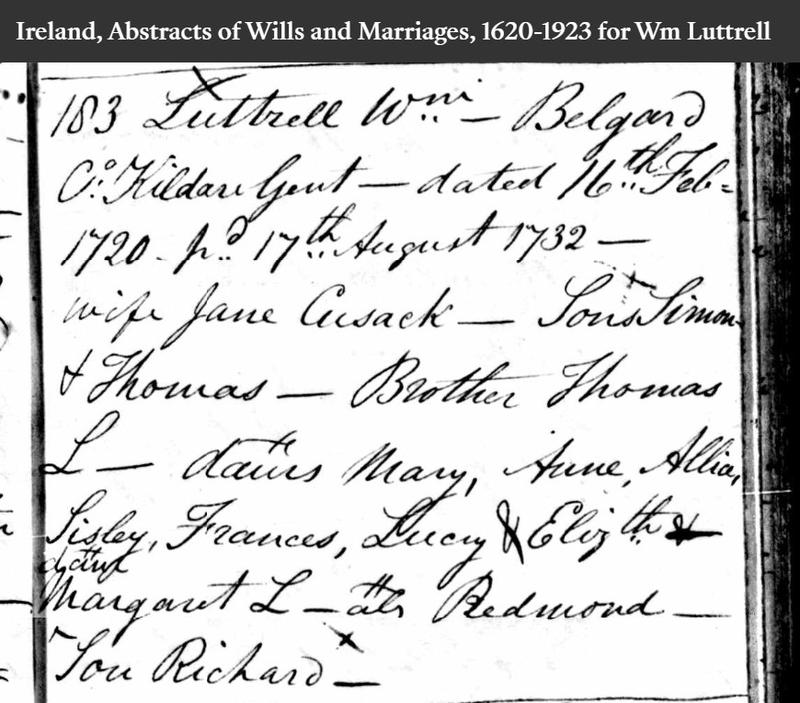 Ireland, Abstracts of Wills and Marriages, 1620-1923 for Wm Luttrell
183 Luttrell Wm – Belgard
Co: Kildare Gent – dated 16th Feb=
1720 - pd 17th August 1732 –
wife Jane Cusack – Sons Simon
& Thomas – Brother Thomas
L – datrs Mary, Anne, Allia,
Sisley, Frances, Lucy & Elizth &
datr
Margaret L – als Redmond –
Son Richard –